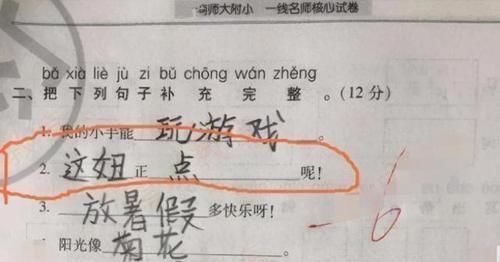 师大附小 一线名师核心试卷
bǎ xià liè jù zi bǔ chōng wán zhěng
二、把下列句子补充完整。(12分)
1. 我的小手能玩游戏。
2. 这妞正点呢!
3. 放暑假多快乐呀!
阳光像菊花。
-6